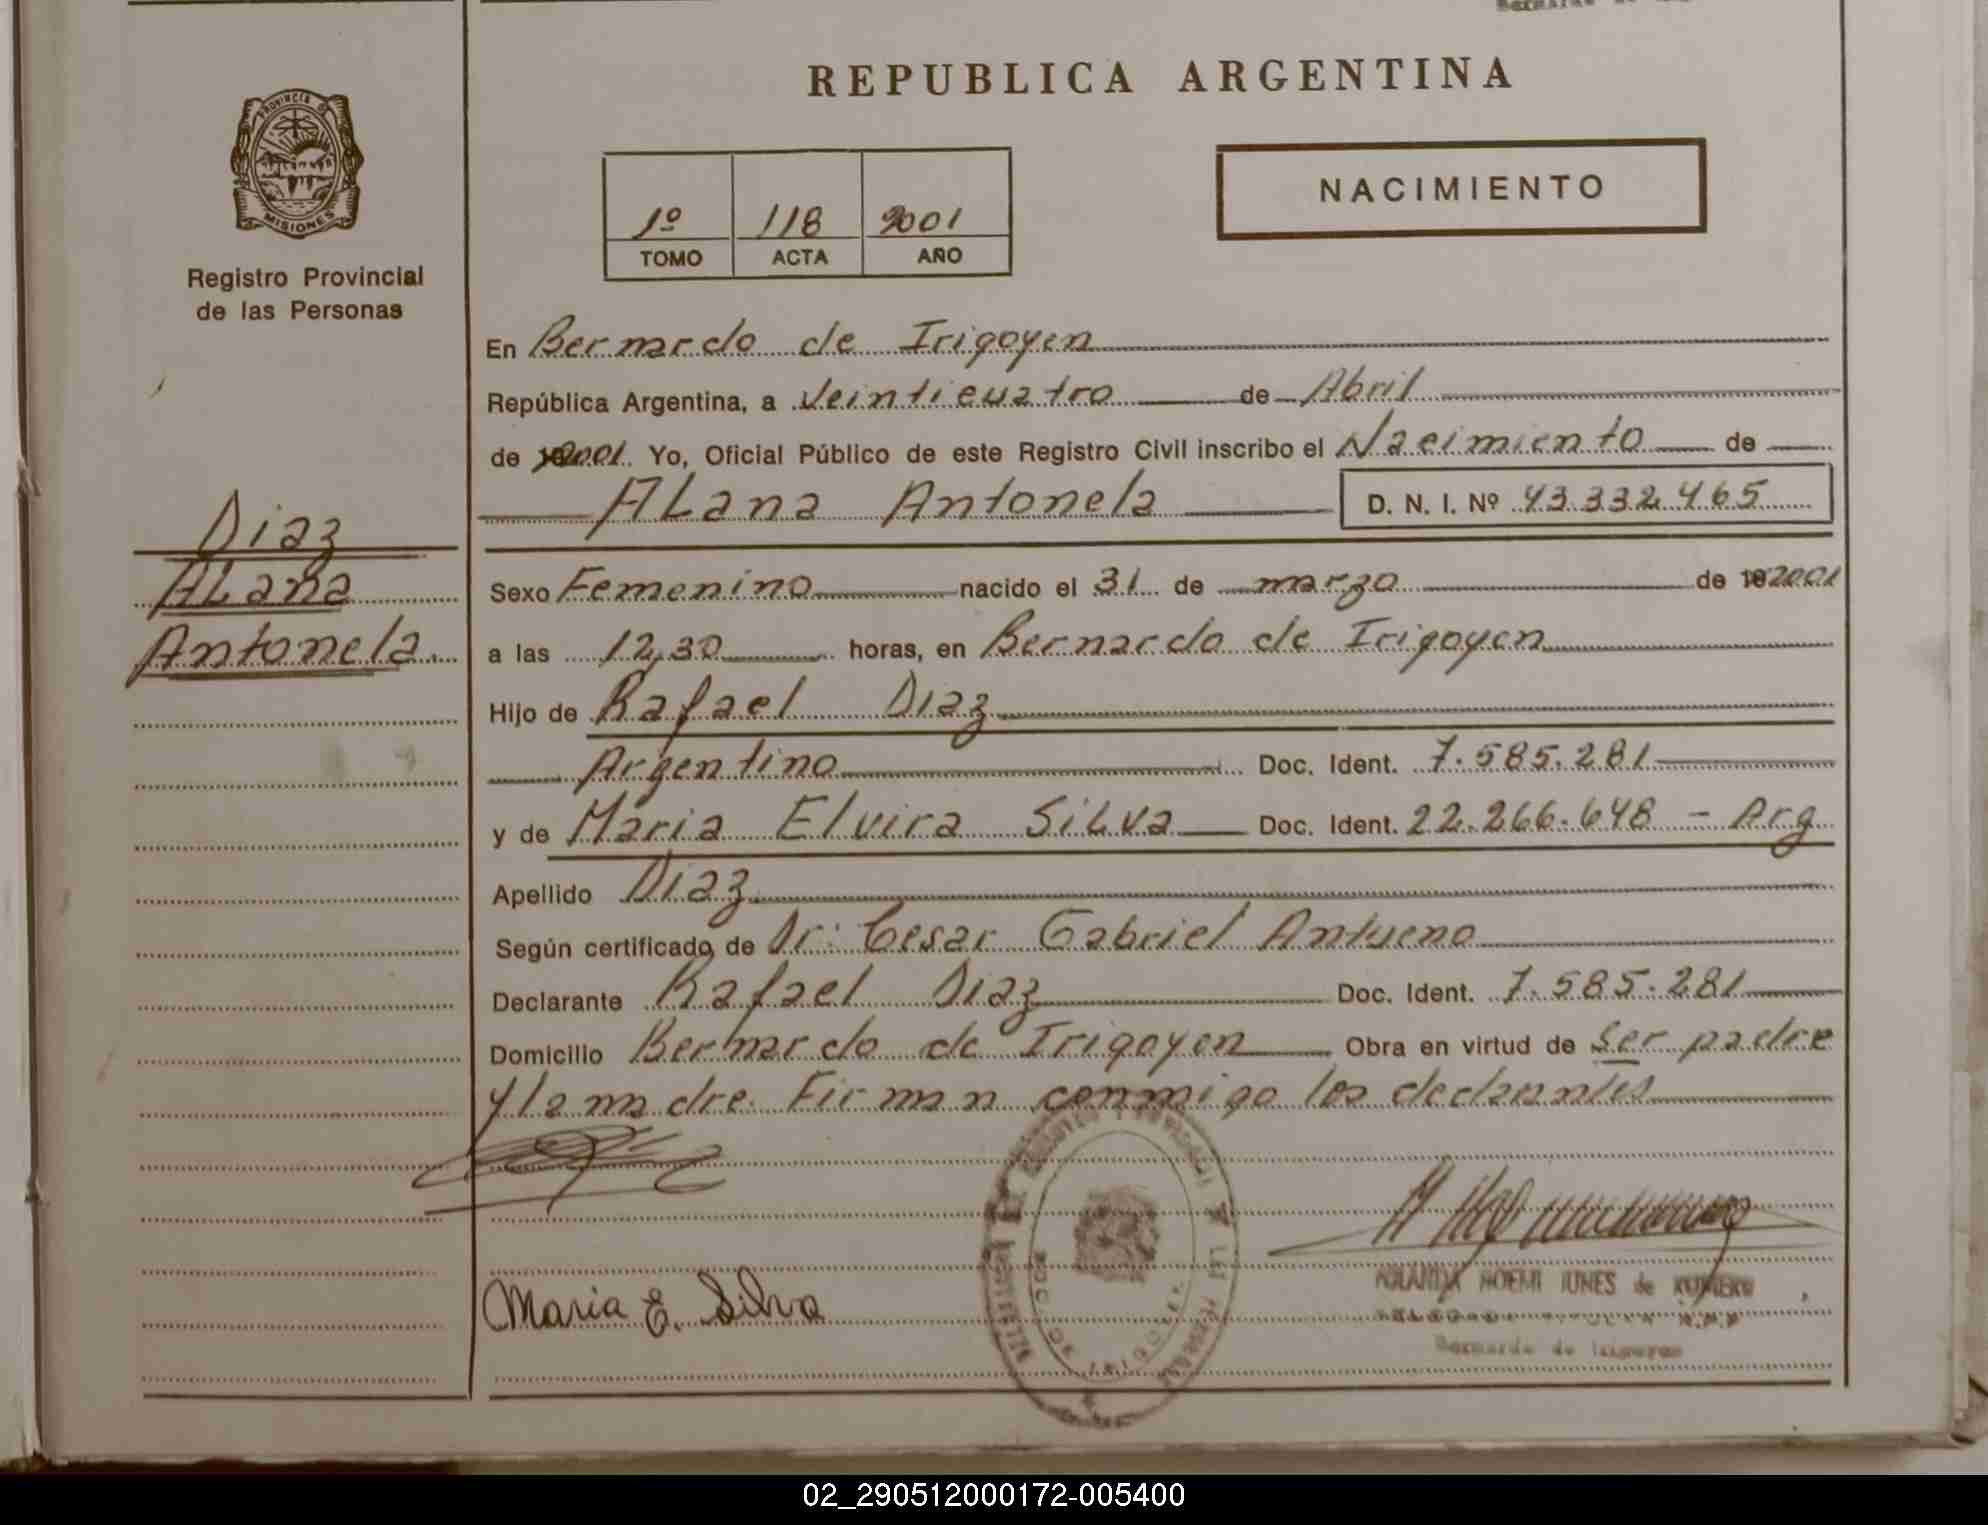 REPUBLICA ARGENTINA
PROVINCIA DE
MISIONES
Registro Provincial
de las Personas
NACIMIENTO
1º 118 2001
TOMO ACTA AÑO
En Bernardo de Irigoyen
República Argentina, a Veinticuatro de Abril
de 2001. Yo, Oficial Público de este Registro Civil inscribo el Nacimiento de
ALana Antonela D. N. I. Nº 43.332.465
Diaz
ALana
Antonela.
Sexo Femenino nacido el 31 de marzo de 2001
a las 12,30 horas, en Bernardo de Irigoyen
Hijo de Rafael Diaz
Argentino Doc. Ident. 7.585.281
y de Maria Elvira SiLva Doc. Ident. 22.266.648 - Arg
Apellido Diaz
Según certificado de Dr: Cesar Gabriel
Declarante Rafael Diaz Doc. Ident. 7.585.281
Domicilio Bernardo de Irigoyen Obra en virtud de Ser padre
y la madre. Firman conmigo los declarantes
Maria E. Silva
NOEMI de
Bernardo de Irigoyen
02_290512000172-005400